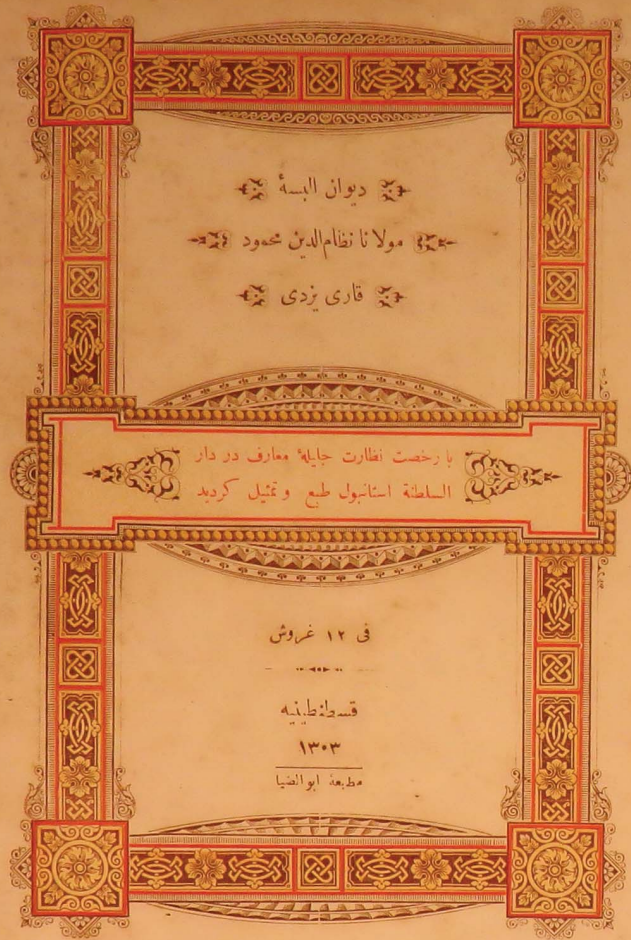 دیوان البسهٔ
مولانا نظام‌الدین محمود
قاری یزدی
با رخصت نظارت جلیلهٔ معارف در دار
السلطنة استانبول طبع و تمثیل کردید
فی ۱۲ غروش
قسطنطینیه
۱۳۰۳
مطبعهٔ ابوالضیا